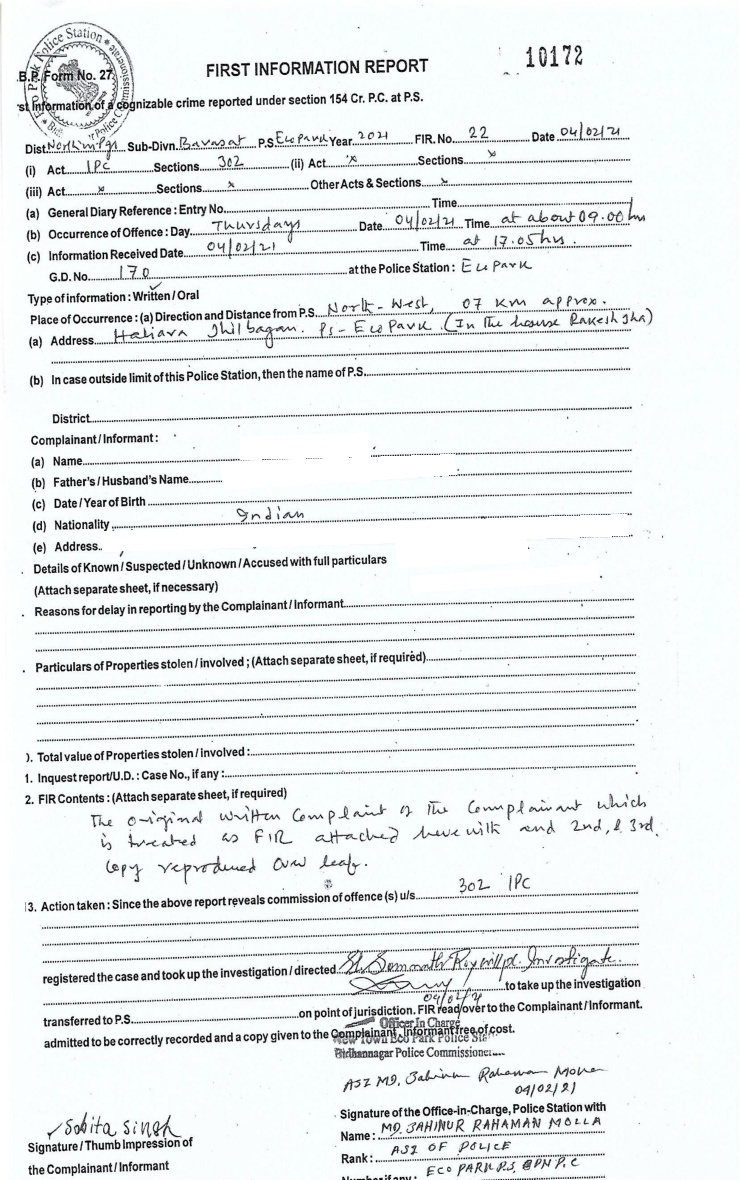 10172
Eco Park Police Station
B.P. Form No. 27
FIRST INFORMATION REPORT
st Information of a cognizable crime reported under section 154 Cr. P.C. at P.S.
Dist. Sub-Divn. Barasat P.S. Eco Park Year 2021 FIR. No. 22 Date 04/02/21
(i) Act IPC Sections 302 (ii) Act x Sections x
(iii) Act x Sections x Other Acts & Sections x
(a) General Diary Reference : Entry No. Time
(b) Occurrence of Offence : Day Thursdays Date 04/02/21 Time at about 09.00 hrs
(c) Information Received Date 04/02/21 Time at 17.05 hrs.
G.D. No. 170 at the Police Station : Eco Park
Type of information : Written / Oral
Place of Occurrence : (a) Direction and Distance from P.S. North-West, 07 km approx.
(a) Address Hatiara Jhilbagan. Ps- Eco Park. (In the house Rakesh Jha)
(b) In case outside limit of this Police Station, then the name of P.S.
District
Complainant / Informant :
(a) Name
(b) Father's / Husband's Name
(c) Date / Year of Birth
(d) Nationality Indian
(e) Address..
Details of Known / Suspected / Unknown / Accused with full particulars
(Attach separate sheet, if necessary)
. Reasons for delay in reporting by the Complainant / Informant
. Particulars of Properties stolen / involved ; (Attach separate sheet, if required)
). Total value of Properties stolen / involved :
1. Inquest report/U.D. : Case No., if any :
2. FIR Contents : (Attach separate sheet, if required)
The original written Complaint of the Complainant which
is treated as FIR attached herewith and 2nd, & 3rd
Copy reproduced over leaf.
3. Action taken : Since the above report reveals commission of offence (s) u/s 302 IPC
registered the case and took up the investigation / directed SI. Somnath Roy will pl. Investigate.
to take up the investigation
04/02/21
transferred to P.S. on point of jurisdiction. FIR read/over to the Complainant / Informant.
admitted to be correctly recorded and a copy given to the Complainant, Informant free of cost.
Officer In Charge
New Town Eco Park Police
Bidhannagar Police Commissioner
ASI MD. Jahinur Rahaman Molla
04/02/21
Sobita Singh
Signature / Thumb Impression of
the Complainant / Informant
Signature of the Office-in-Charge, Police Station with
Name : MD. JAHINUR RAHAMAN MOLLA
Rank : ASI OF POLICE
Number if any : ECO PARK P.S. BPN P.C